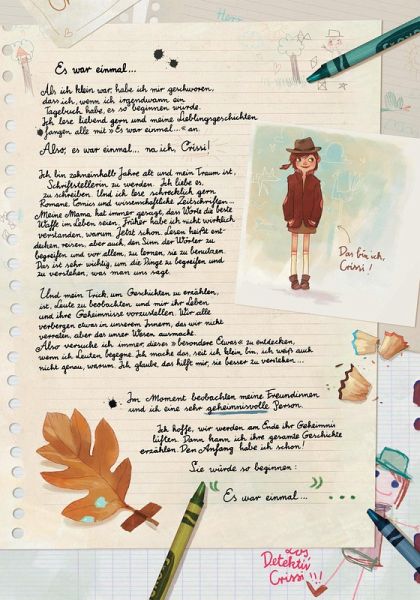 Es war einmal...
Als ich klein war, habe ich mir geschworen,
dass ich, wenn ich irgendwann ein
Tagebuch habe, es so beginnen würde.
Ich lese liebend gern und meine Lieblingsgeschichten
fangen alle mit »Es war einmal...« an.
Also, es war einmal... na ich, Crissi!
Ich bin zehneinhalb Jahre alt und mein Traum ist,
Schriftstellerin zu werden. Ich liebe es,
zu schreiben. Und ich lese schrecklich gern
Romane, Comics und wissenschaftliche Zeitschriften...
Meine Mama hat immer gesagt, dass Worte die beste
Waffe im Leben seien. Früher habe ich nicht wirklich
verstanden, warum. Jetzt schon. Lesen heißt ent-
decken, reisen, aber auch, den Sinn der Wörter zu
begreifen und vor allem, zu lernen, sie zu benutzen.
Das ist sehr wichtig, um die Dinge zu begreifen und
zu verstehen, was man uns sagt.
Und mein Trick, um Geschichten zu erzählen,
ist, Leute zu beobachten, und mir ihr Leben
und ihre Geheimnisse vorzustellen. Wir alle
verbergen etwas in unserem Innern, das wir nicht
verraten, aber das unser Wesen ausmacht.
Also versuche ich immer, dieses »besondere Etwas« zu entdecken,
wenn ich Leuten begegne. Ich mache das, seit ich klein bin, ich weiß auch
nicht genau, warum. Ich glaube, das hilft mir, sie besser zu verstehen...
Im Moment beobachten meine Freundinnen
und ich eine sehr geheimnisvolle Person.
Ich hoffe, wir werden am Ende ihr Geheimnis
lüften. Dann kann ich ihre gesamte Geschichte
erzählen. Den Anfang habe ich schon!
Sie würde so beginnen:
"Es war einmal..." ...
Das bin ich,
Crissi!
Detektiv
Crissi!!!